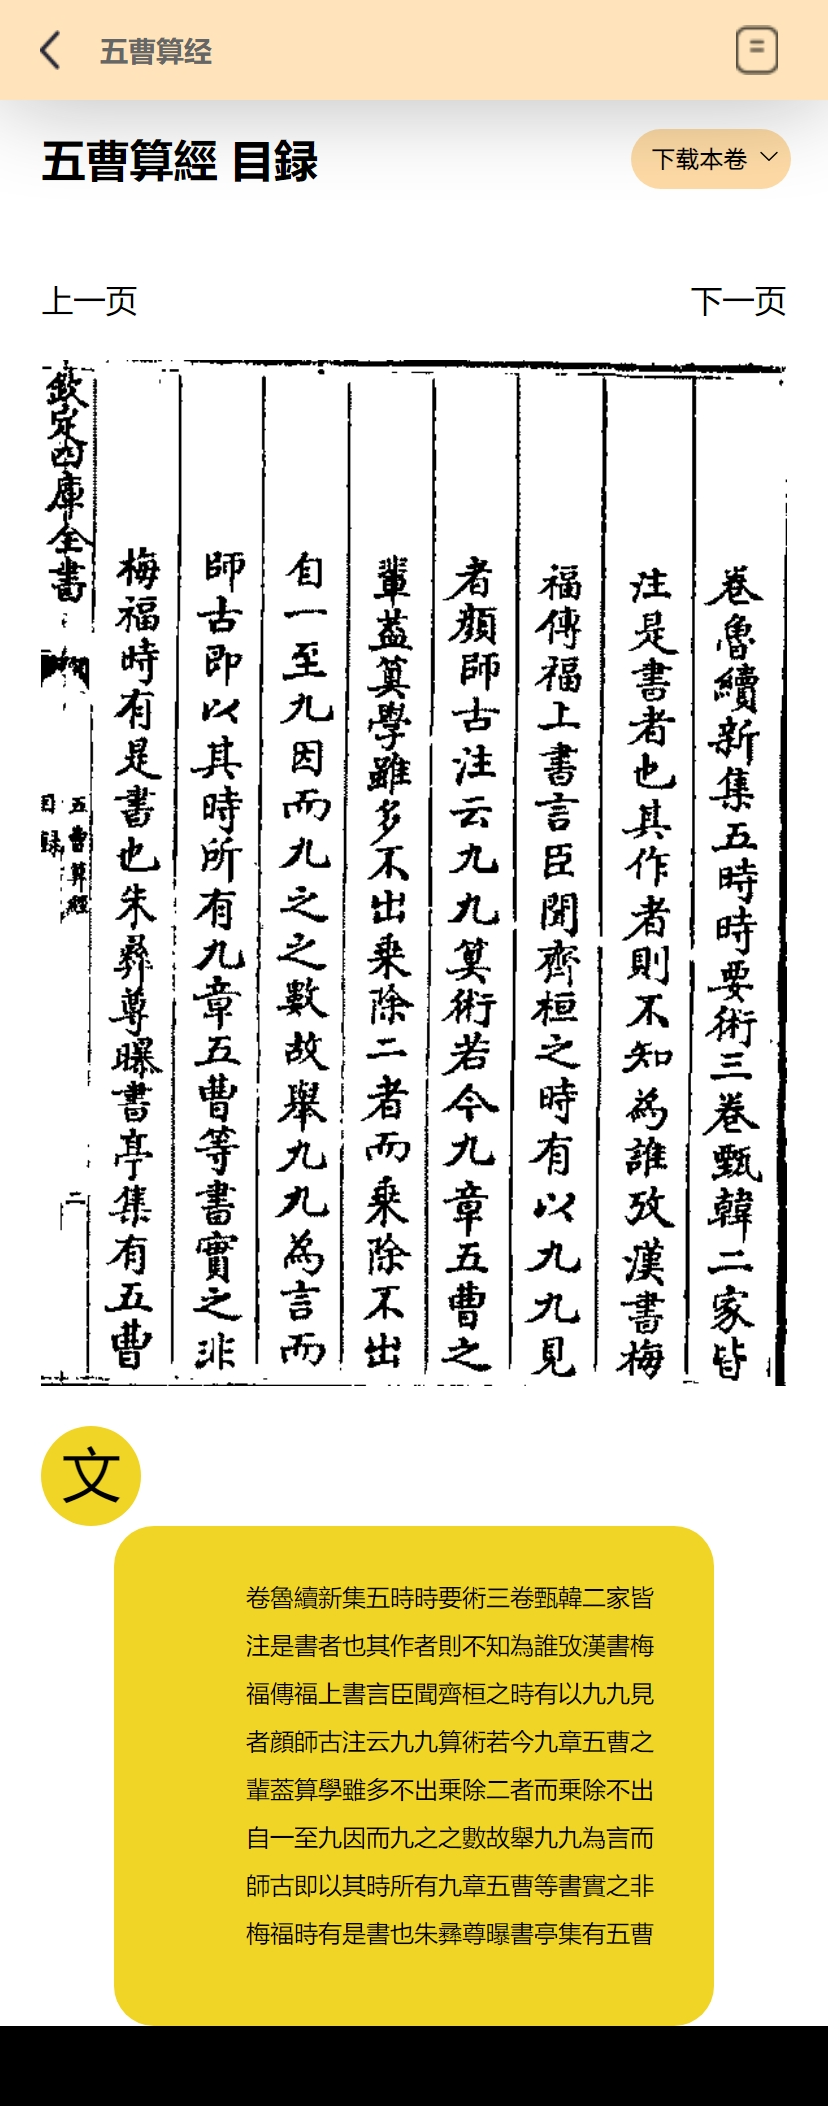 五曹算经
五曹算經 目録
下载本卷
上一页
下一页
卷魯續新集五時時要術三卷甄韓二家皆
注是書者也其作者則不知為誰攷漢書梅
福傳福上書言臣聞齊桓之時有以九九見
者顔師古注云九九算術若今九章五曹之
輩葢算學雖多不出乗除二者而乗除不出
自一至九因而九之之數故舉九九為言而
師古即以其時所有九章五曹等書實之非
梅福時有是書也朱彞尊曝書亭集有五曹
欽定四庫全書
五曹算經
目録
二
文
卷魯續新集五時時要術三卷甄韓二家皆
注是書者也其作者則不知為誰攷漢書梅
福傳福上書言臣聞齊桓之時有以九九見
者顔師古注云九九算術若今九章五曹之
輩葢算學雖多不出乗除二者而乗除不出
自一至九因而九之之數故舉九九為言而
師古即以其時所有九章五曹等書實之非
梅福時有是書也朱彞尊曝書亭集有五曹